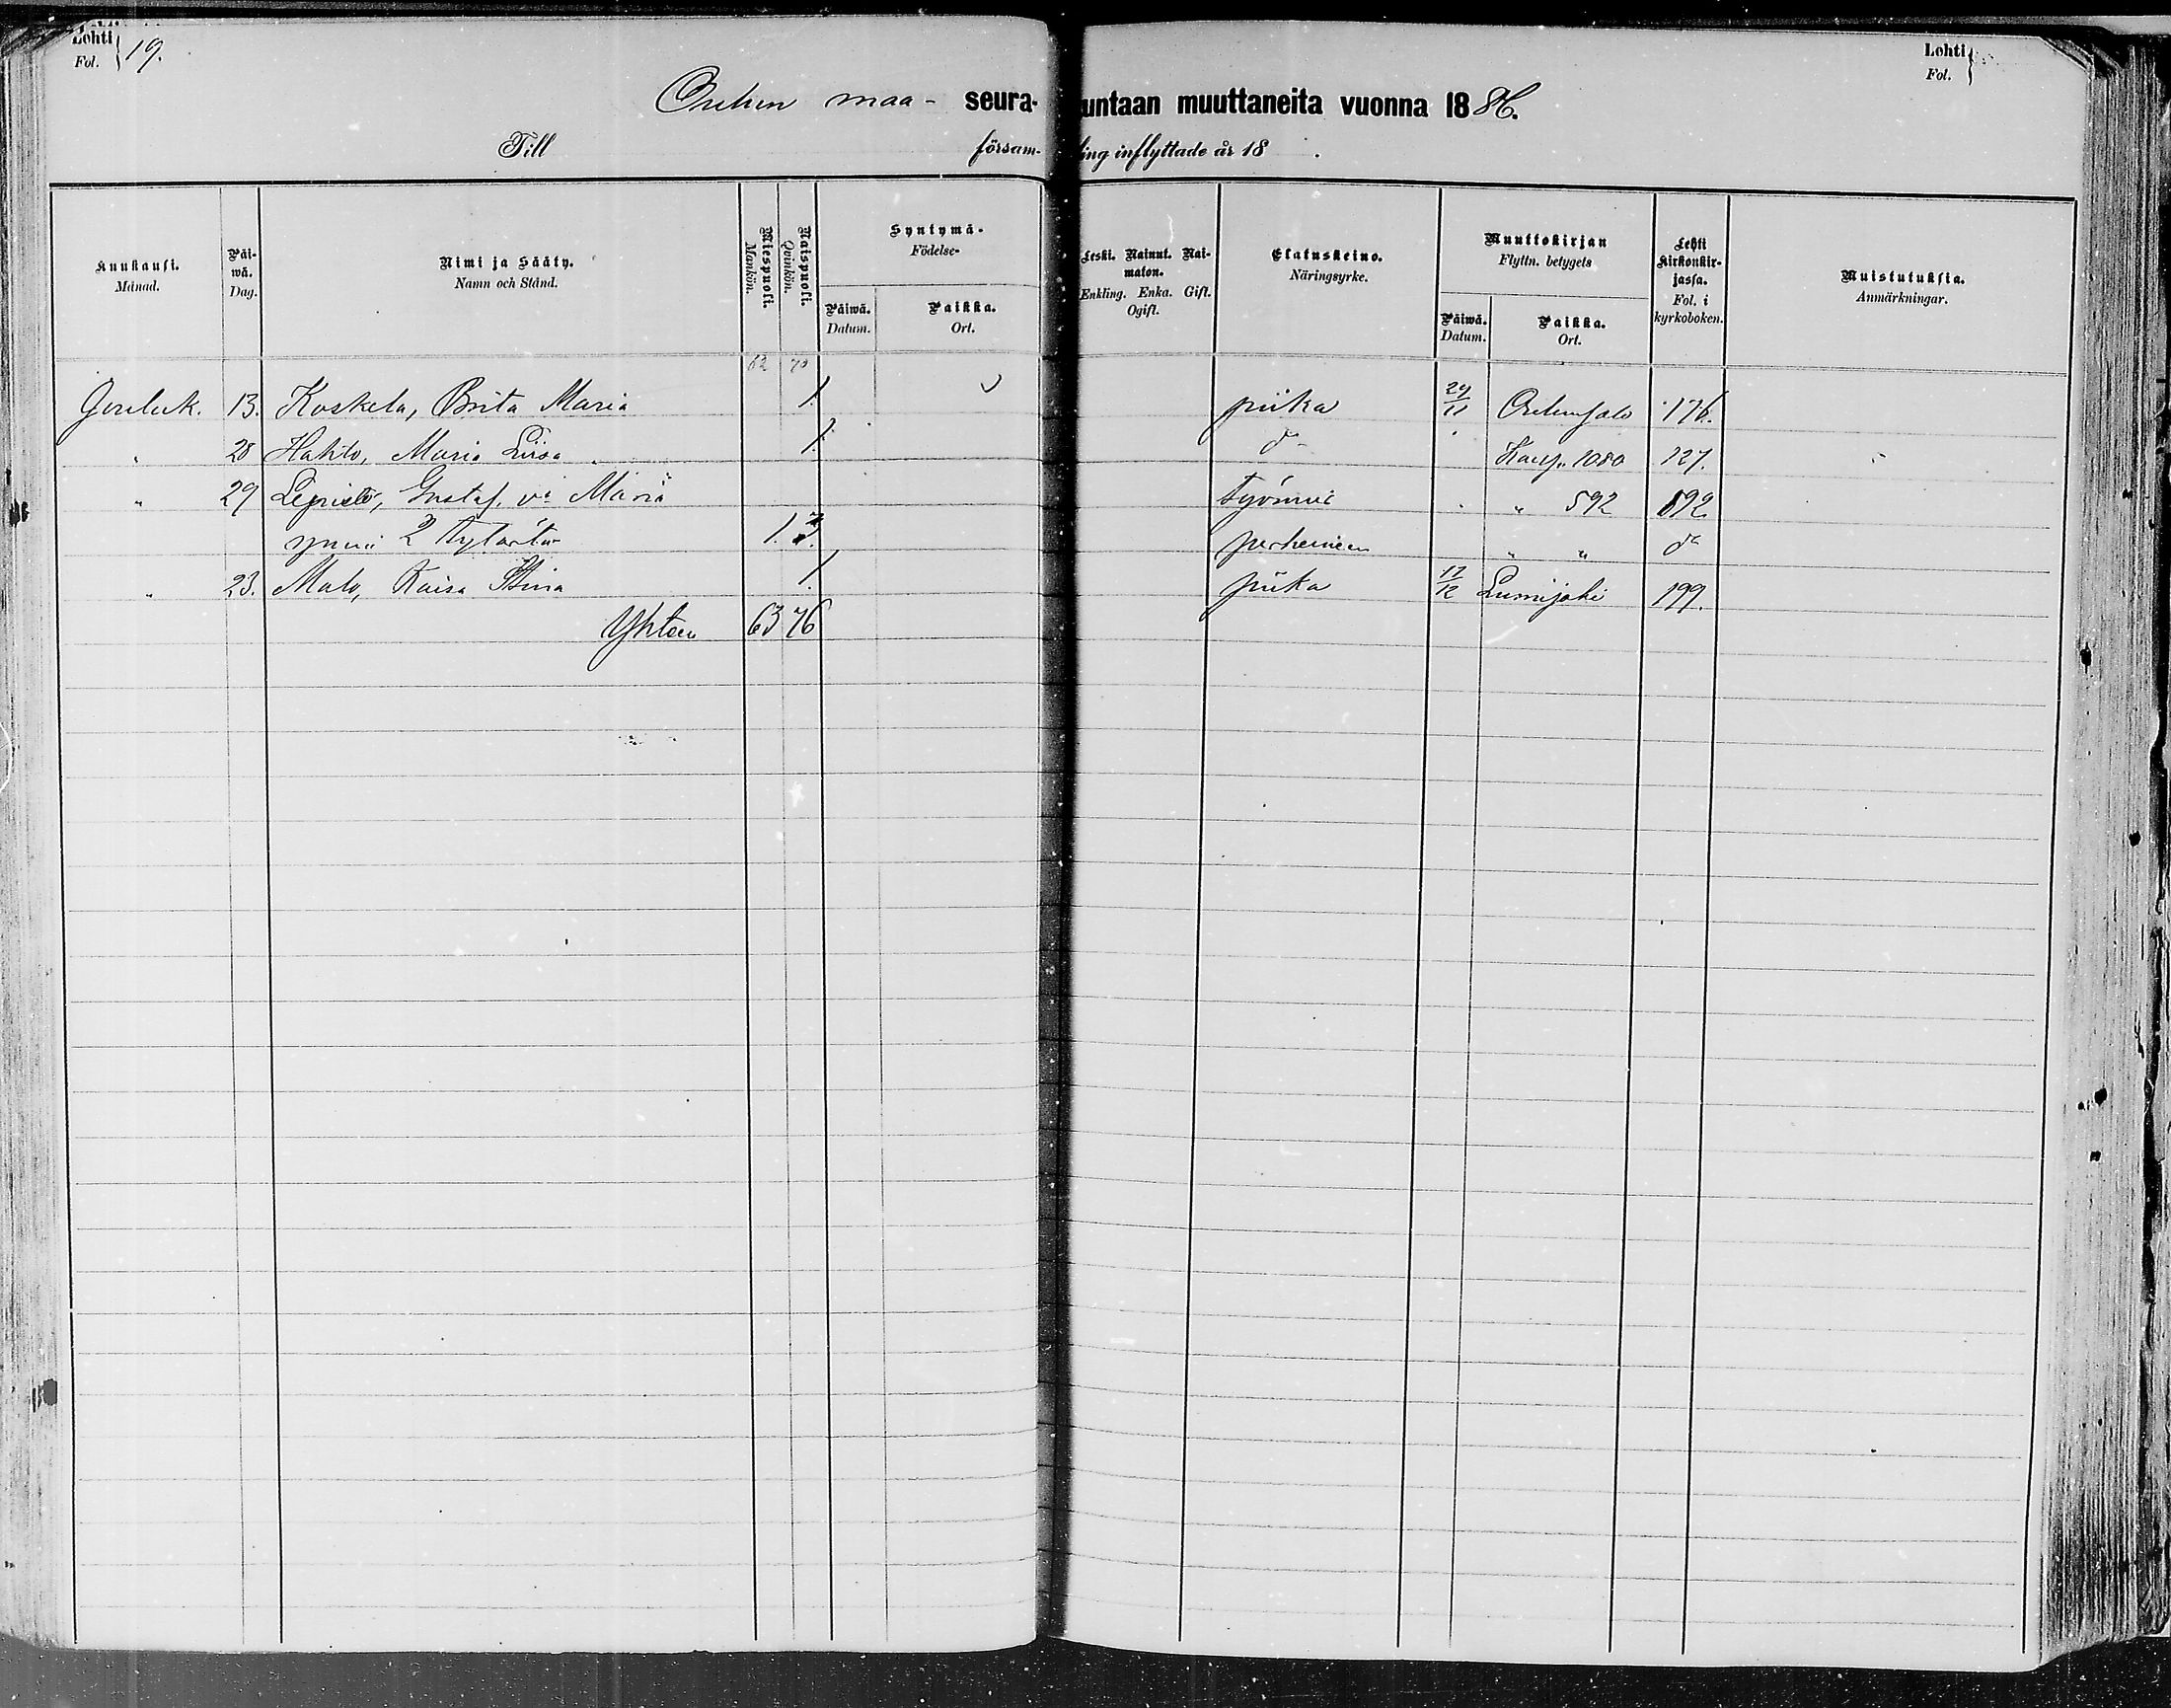 Lehti
Fol.
19.
Lehti
Fol.
Oulun maa- seura-
kuntaan muuttaneita vuonna 1886.
Till försam-
ling inflyttade år 18 .
Kuukausi.
Månad.
Päi-
wä.
Dag.
Nimi ja Sääty.
Namn och Stånd.
Miespuoli.
Mankön.
Naispuoli.
Qvinkön.
Syntymä-
Födelse-
Päiwä.
Datum.
Paikka.
Ort.
Leski. Nainut. Nai-
maton.
Enkling. Enka. Gift.
Ogift.
Elatuskeino.
Näringsyrke.
Muuttokirjan
Flyttn. betygets
Päiwä.
Datum.
Paikka.
Ort.
Lehti
Kirkonkir-
jassa.
Fol. i
kyrkoboken.
Muistutuksia.
Anmärkningar.
62 70
Jouluk. 13. Koskela, Brita Maria 1. piika 29/11 Oulunsalo 176.
" 28 Hahto, Maria Liisa 1. do Kaup. 1080 127.
" 29 Lepistö, Gustaf, va Maria työmie " 592 592
ynnä 2 tytärtä 1. 3. perheineen " " do
" 23. Malo, Kaisa Stina 1. piika 17/12 Lumijoki 199.
Yhteen 63 76